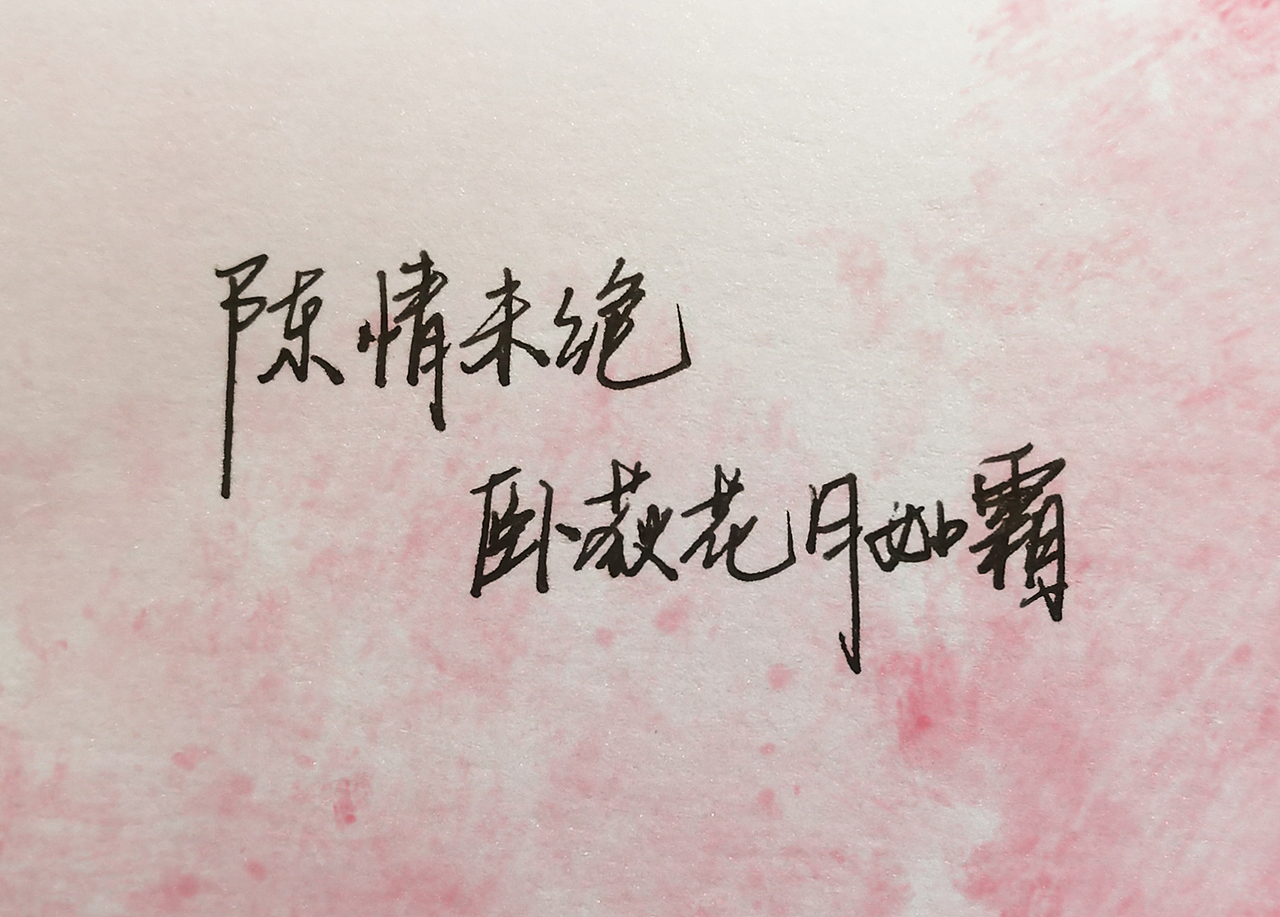 陈情未绝
卧荻花月如霜